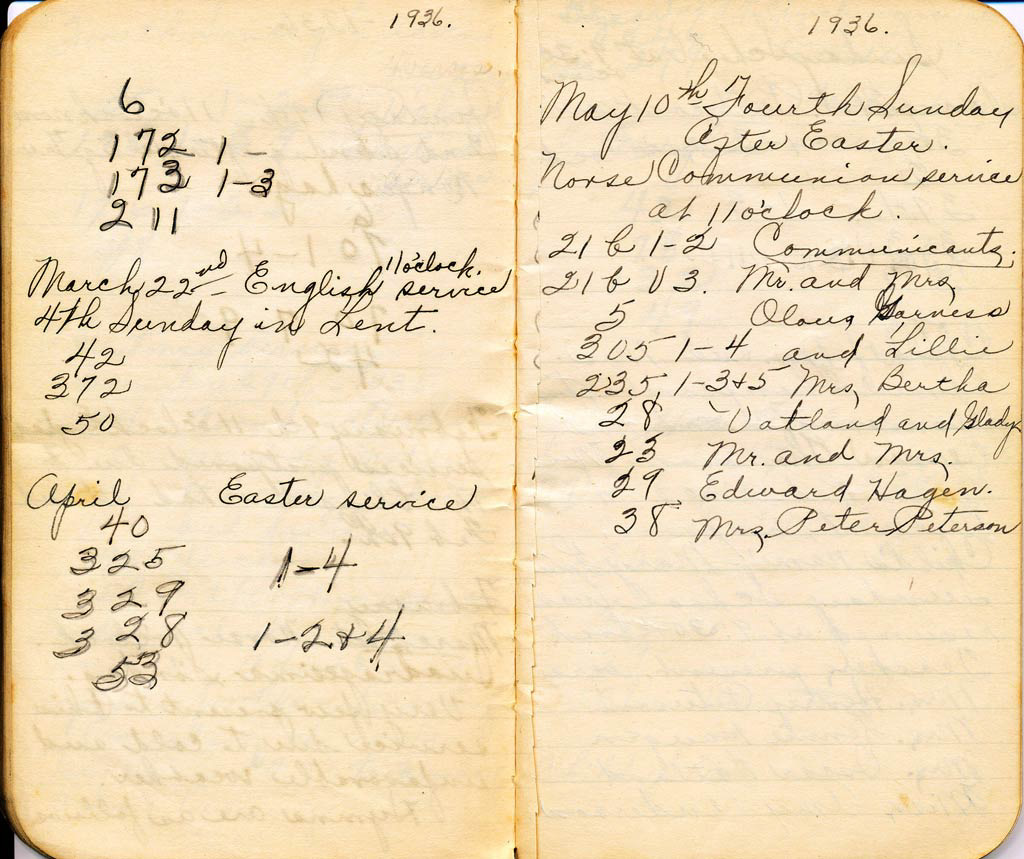 1936.
6
172 1-
173 1-3
211
March 22nd English 11 o'clock. service
4th Sunday in Lent.
42
372
50
April Easter service
40
325 1-4
329
328 1-2&4
53
1936.
May 10th Fourth Sunday
After Easter.
Norse Communion service
at 11 o'clock.
216 1-2 Communicants.
216 V 3. Mr. and Mrs.
5 Olous Garness
305 1-4 and Lillie
235, 1-3&5 Mrs, Bertha
28 Vatland and Glady
23 Mr. and Mrs,
29 Edward Hagen.
38 Mrs, Peter Peterson